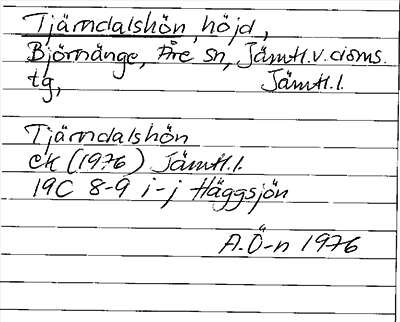 Tjärndalshön, höjd,
Björnänge, Åre sn, Jämtl.v.doms.
tg, Jämtl.l.
Tjärndalshön
ek (1976) Jämtl.l.
19C 8-9 i-j Häggsjön
A.Ö-n 1976